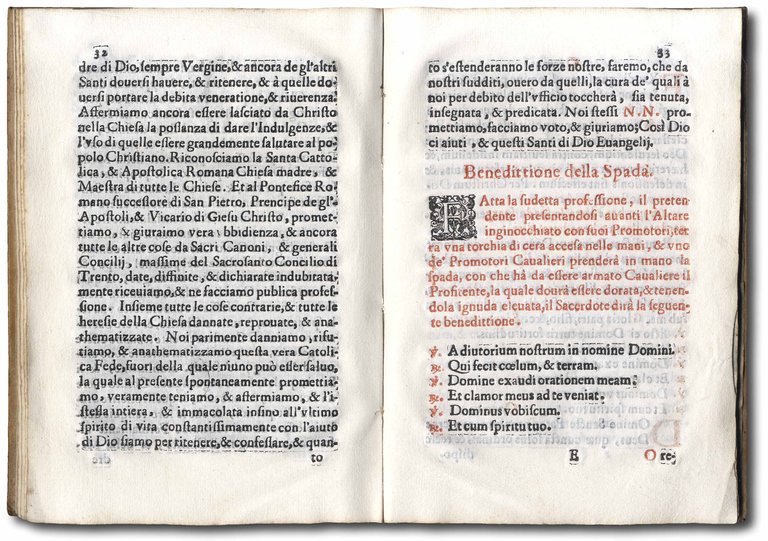 32
dre di Dio, sempre Vergine, & ancora de gl'altri
Santi douersi hauere, & ritenere, & à quelle do-
uersi portare la debita veneratione, & riuerenza.
Affermiamo ancora essere lasciato da Christo
nella Chiesa la possanza di dare l'Indulgenze, &
l'vso di quelle essere grandemente salutare al po-
polo Christiano. Riconosciamo la Santa Catto-
lica, & Apostolica Romana Chiesa madre, &
Maestra di tutte le Chiese. Et al Pontefice Ro-
mano successore di San Pietro, Prencipe de gl'
Apostoli, & Vicario di Giesu Christo, promet-
tiamo, & giuraimo vera vbbidienza, & ancora
tutte le altre cose da Sacri Canoni, & generali
Concilij, massime del Sacrosanto Concilio di
Trento, date, diffinite, & dichiarate indubitata-
mente riceuiamo, & ne facciamo publica profes-
sione. Insieme tutte le cose contrarie, & tutte le
heresie della Chiesa dannate, reprouate, & ana-
thematizzate. Noi parimente danniamo, rifiu-
tiamo, & anathematizzamo questa vera Catoli-
ca Fede, fuori della quale niuno può esser saluo,
la quale al presente spontaneamente promettia-
mo, veramente teniamo, & affermiamo, & l'i-
stessa intiera, & immacolata insino all'vltimo
spirito di vita constantissimamente con l'aiuto
di Dio siamo per ritenere, & confessare, & quan-
to
33
to s'estenderanno le forze nostre, faremo, che da
nostri sudditi, ouero da quelli, la cura de' quali à
noi per debito dell'vfficio toccherà, sia tenuta,
insegnata, & predicata. Noi stessi N. N. pro-
mettiamo, facciamo voto, & giuriamo; Così Dio
ci aiuti, & questi Santi di Dio Euangelij.
Benedittione della Spada.
FAtta la sudetta professione, il preten-
dente presentandosi auanti l'Altare
inginocchiato con suoi Promotori, ter-
rà vna torchia di cera accesa nelle mani, & vno
de' Promotori Caualieri prenderà in mano la
spada, con che hà da essere armato Caualiere il
Profitente, la quale dourà essere dorata, & tenen-
dola ignuda eleuata, il Sacerdote dirà la seguen-
te benedittione.
℣. Adiutorium nostrum in nomine Domini.
℟. Qui fecit cœlum, & terram.
℣. Domine exaudi orationem meam.
℟. Et clamor meus ad te veniat.
℣. Dominus vobiscum.
℟. Et cum spiritu tuo.
E Ore-